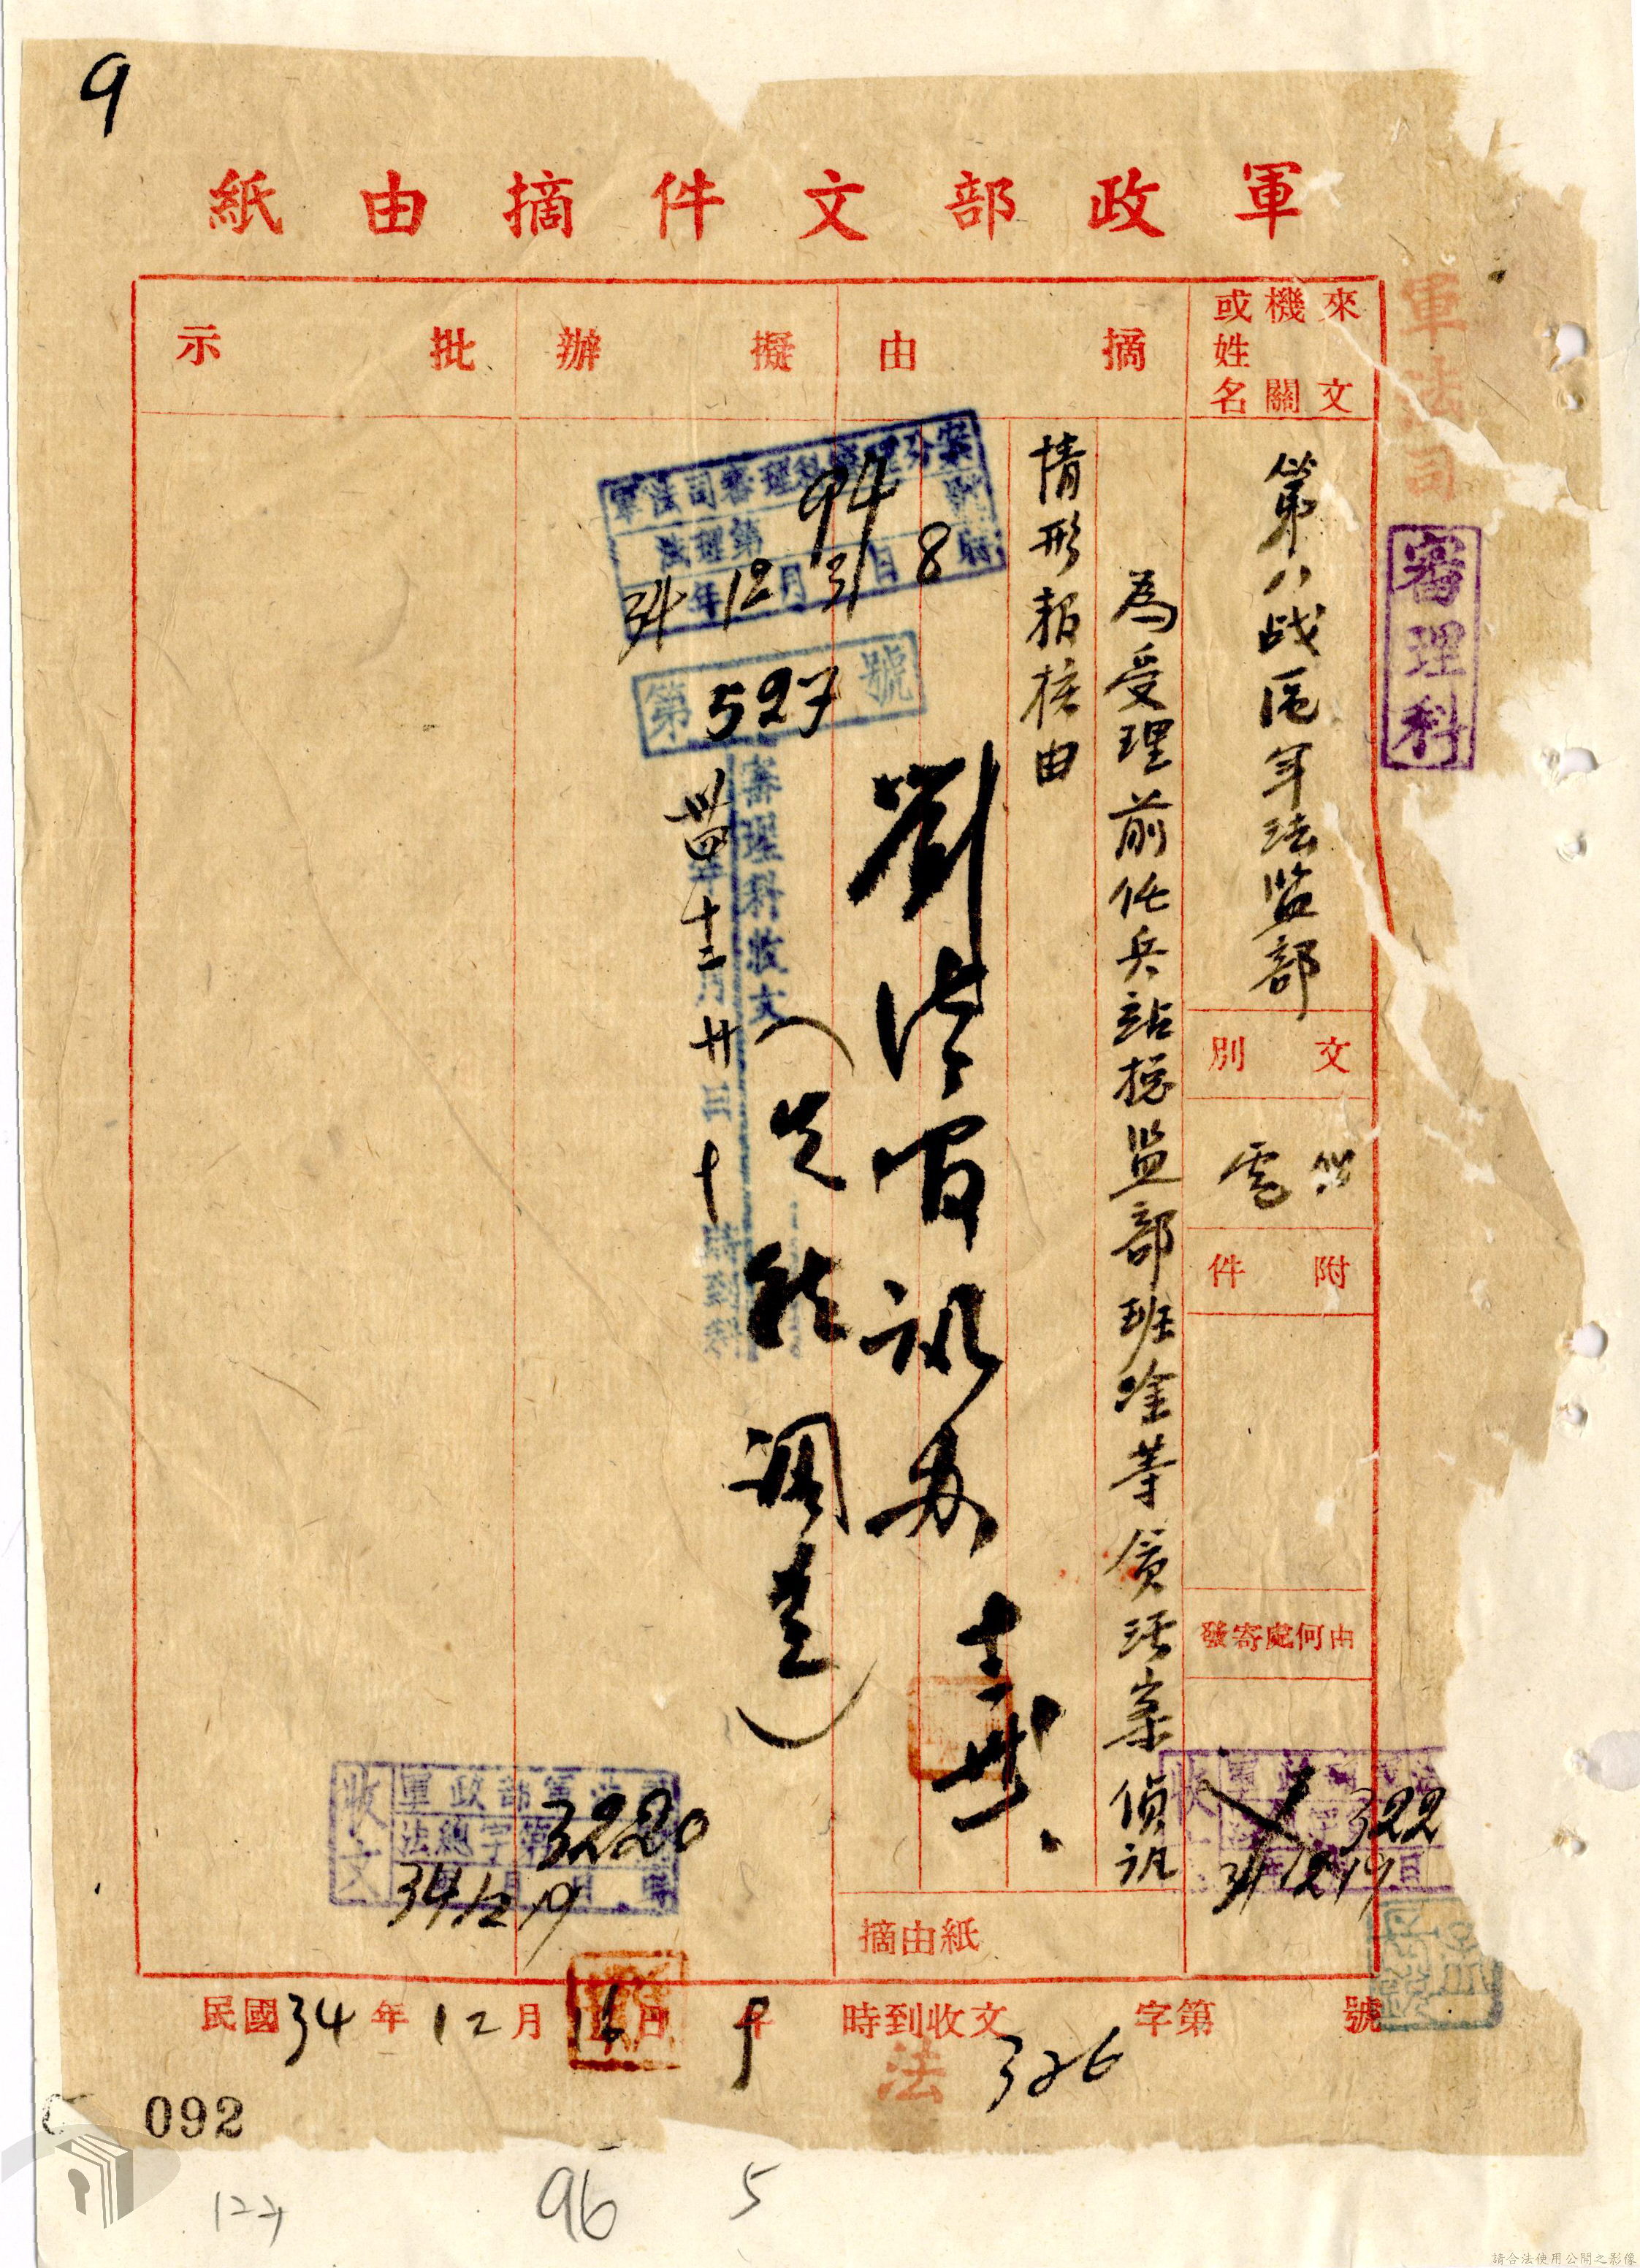 9
軍政部文件摘由紙
軍法司
審理科
來文機關或姓名
第八战區軍法监部
文別
電
附件
由何處寄發
322
34 12 19
摘由
為受理前任兵站捴监部班淦等貪污案偵訊
情形報核由
摘由紙
擬辦
軍法司審理科辦理分案
法理第 94
34年12月31日8時
第527號
審理科收文
卅四年十二月廿日十
劉法官訊办
十二 卅一
(先行调卷)
批示
收文
軍政部軍法司
法總字第3220號
34.12.19
民國34年12月16日午9時到收文 字第 號
法 326
092
127
96
5
請合法使用公開之影像